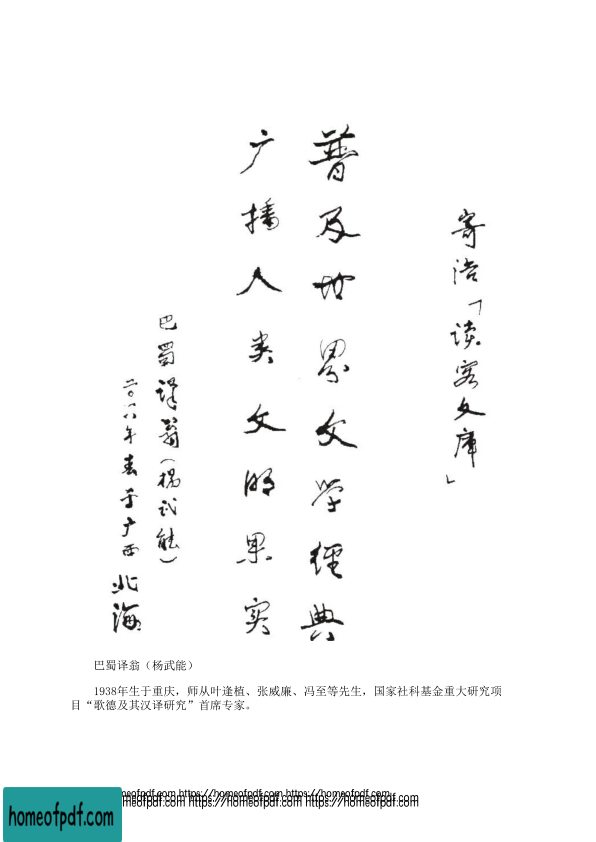 寄语「读客文库」
普及世界文学经典
广播人类文明果实
巴蜀译翁（杨武能）
二〇一八年春于广西北海
巴蜀译翁（杨武能）
1938年生于重庆，师从叶逢植、张威廉、冯至等先生，国家社科基金重大研究项
目“歌德及其汉译研究”首席专家。
homeofpdf.com https://homeofpdf.com https://homeofpdf.com
homeofpdf.com https://homeofpdf.com https://homeofpdf.com
homeofpdf.com